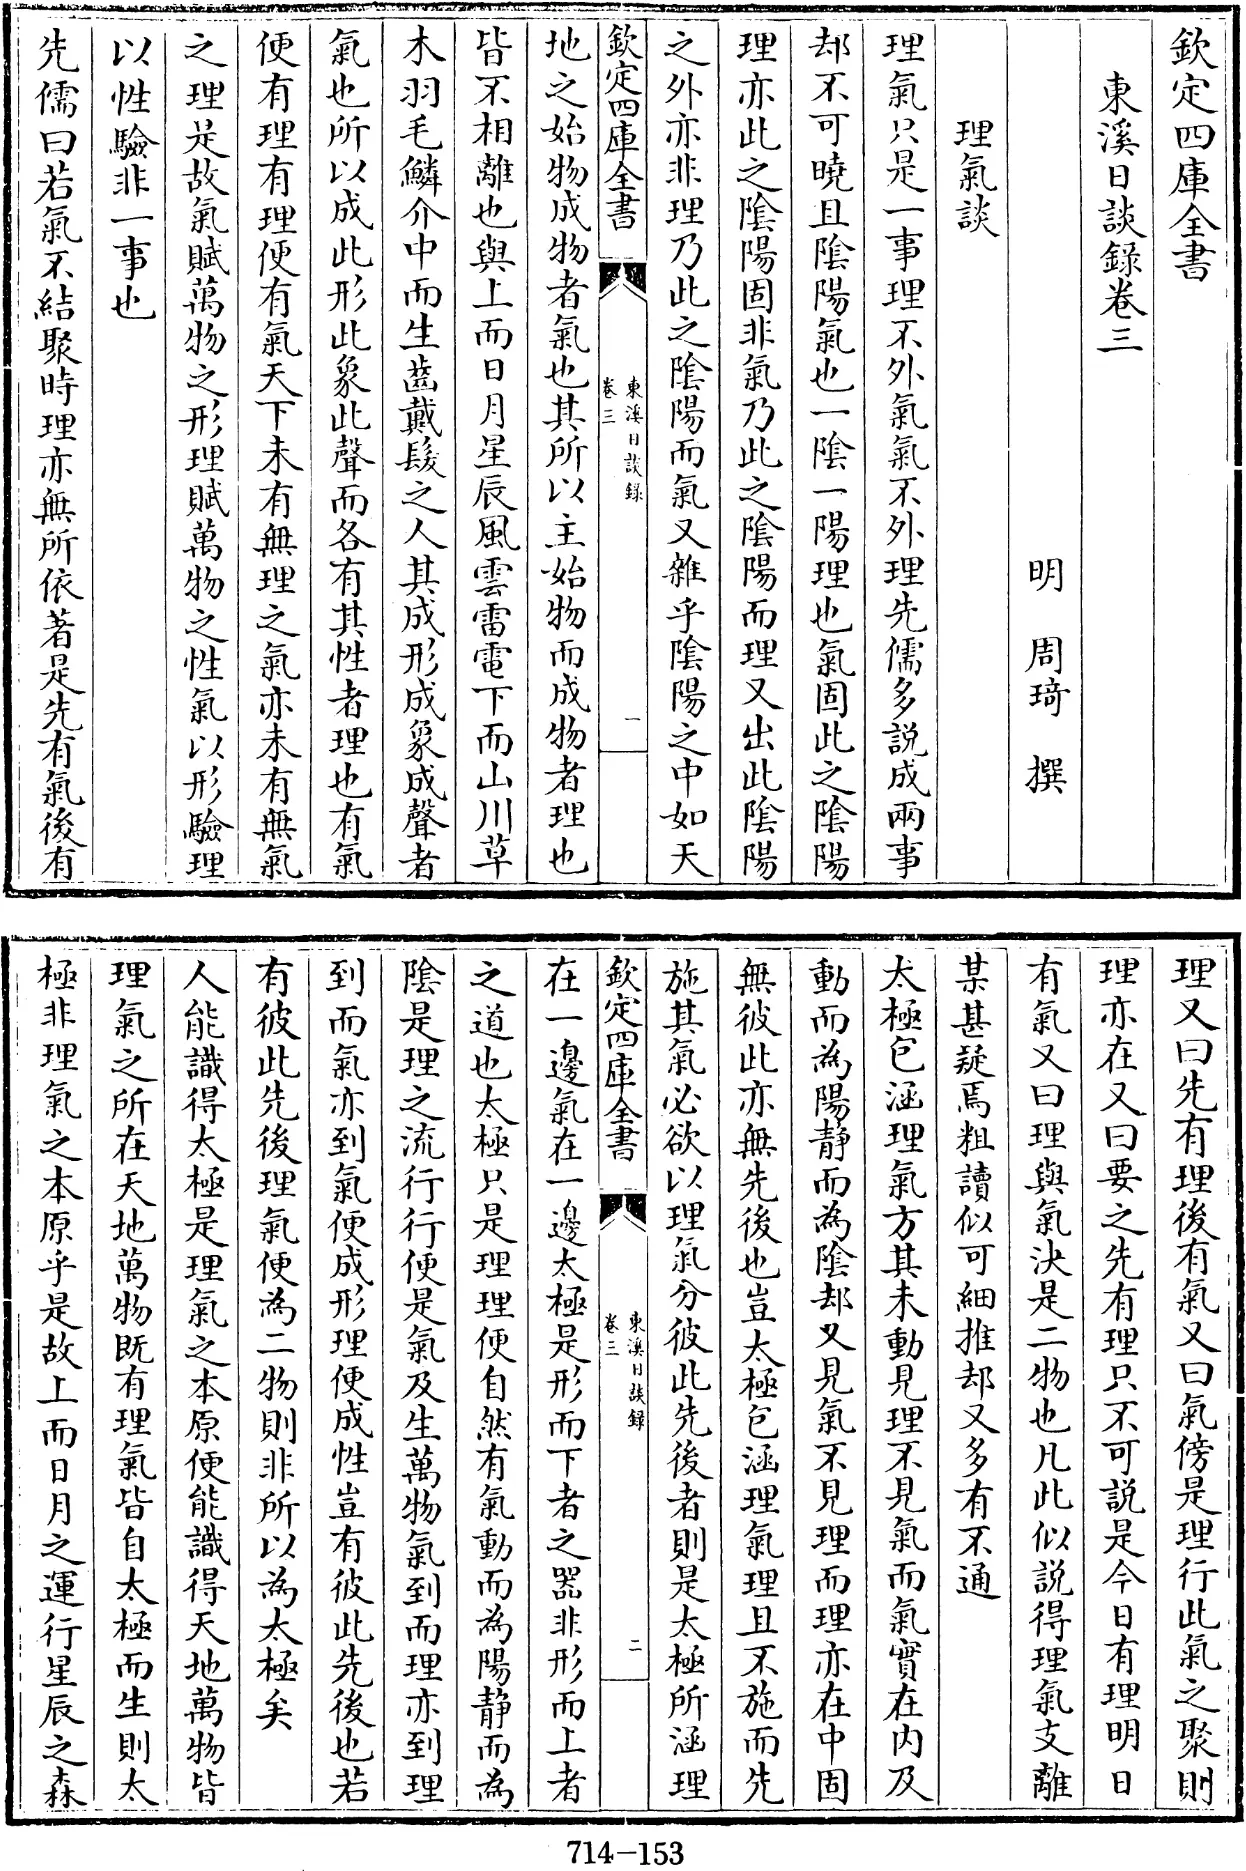 欽定四庫全書
東溪日談録卷三
明 周琦 撰
理氣談
理氣只是一事理不外氣氣不外理先儒多説成兩事
却不可曉且陰陽氣也一陰一陽理也氣固此之陰陽
理亦此之陰陽固非氣乃此之陰陽而理又出此陰陽
之外亦非理乃此之陰陽而氣又雜乎陰陽之中如天
欽定四庫全書
東溪日談録
卷三
一
地之始物成物者氣也其所以主始物而成物者理也
皆不相離也與上而日月星辰風雲雷電下而山川草
木羽毛鱗介中而生齒戴髮之人其成形成象成聲者
氣也所以成此形此象此聲而各有其性者理也有氣
便有理有理便有氣天下未有無理之氣亦未有無氣
之理是故氣賦萬物之形理賦萬物之性氣以形驗理
以性驗非一事也
先儒曰若氣不結聚時理亦無所依著是先有氣後有
理又曰先有理後有氣又曰氣傍是理行此氣之聚則
理亦在又曰要之先有理只不可説是今日有理明日
有氣又曰理與氣決是二物也凡此似説得理氣支離
某甚疑焉粗讀似可細推却又多有不通
太極包涵理氣方其未動見理不見氣而氣實在内及
動而為陽静而為陰却又見氣不見理而理亦在中固
無彼此亦無先後也豈太極包涵理氣理且不施而先
施其氣必欲以理氣分彼此先後者則是太極所涵理
欽定四庫全書
東溪日談録
卷三
二
在一邊氣在一邊太極是形而下者之器非形而上者
之道也太極只是理理便自然有氣動而為陽静而為
陰是理之流行行便是氣及生萬物氣到而理亦到理
到而氣亦到氣便成形理便成性豈有彼此先後也若
有彼此先後理氣便為二物則非所以為太極矣
人能識得太極是理氣之本原便能識得天地萬物皆
理氣之所在天地萬物既有理氣皆自太極而生則太
極非理氣之本原乎是故上而日月之運行星辰之森
714-153